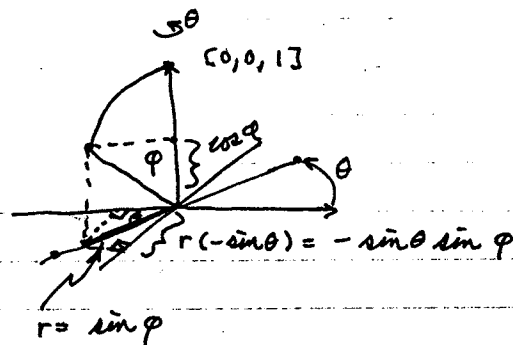 θ
[0, 0, 1]
φ
cos φ
θ
r(-sin θ) = - sin θ sin φ
r = sin φ